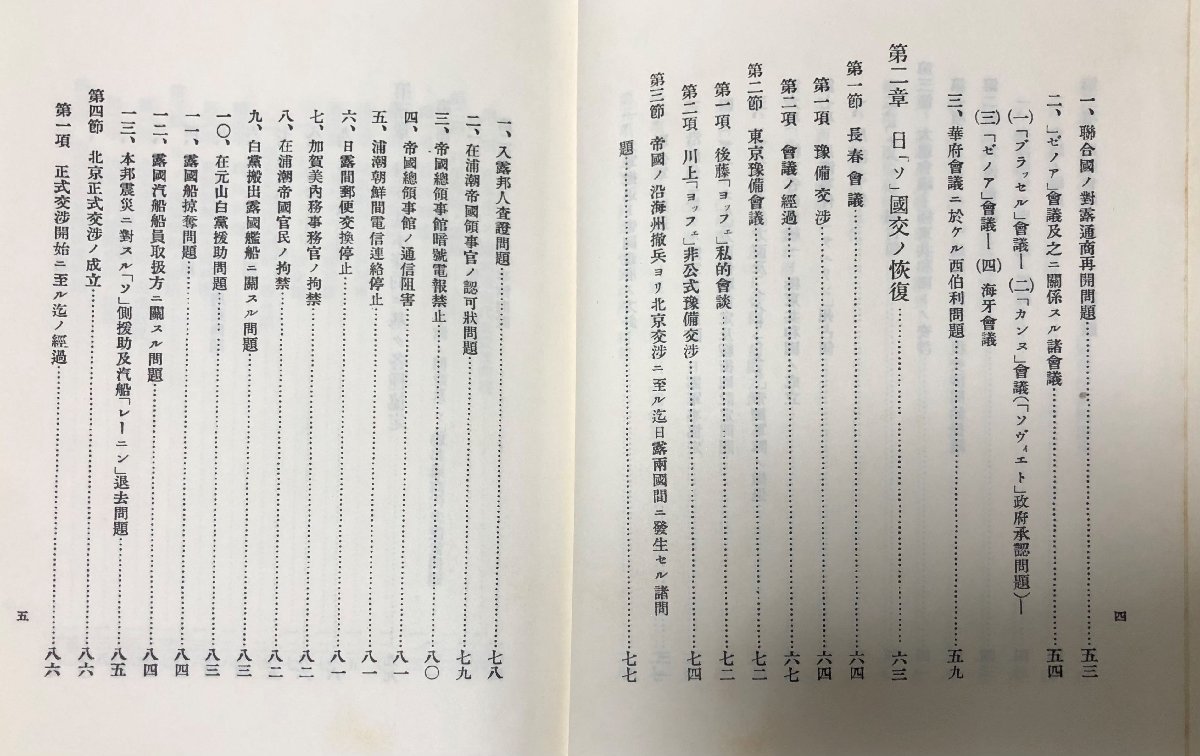 一、聯合國ノ對露通商再開問題…………五三
二、「ゼノア」會議及之ニ關係スル諸會議…………五四
(一)「ブラッセル」會議―(二)「カンヌ」會議(「ソヴィエト」政府承認問題)―
(三)「ゼノア」會議―(四)海牙會議
三、華府會議ニ於ケル西伯利問題…………五九
第二章 日「ソ」國交ノ恢復…………六三
第一節 長春會議…………六四
第一項 豫備交涉…………六四
第二項 會議ノ經過…………六七
第二節 東京豫備會議…………七二
第一項 後藤「ヨッフェ」私的會談…………七二
第二項 川上「ヨッフェ」非公式豫備交涉…………七四
第三節 帝國ノ沿海州撤兵ヨリ北京交涉ニ至ル迄日露兩國間ニ發生セル諸問
題…………七七
四
一、入露邦人査證問題…………七八
二、在浦潮帝國領事官ノ認可狀問題…………七九
三、帝國總領事館暗號電報禁止…………八〇
四、帝國總領事館ノ通信阻害…………八一
五、浦潮朝鮮間電信連絡停止…………八一
六、日露間郵便交換停止…………八一
七、加賀美內務事務官ノ拘禁…………八二
八、在浦潮帝國官民ノ拘禁…………八二
九、白黨搬出露國艦船ニ關スル問題…………八三
一〇、在元山白黨援助問題…………八三
一一、露國船掠奪問題…………八四
一二、露國汽船船員取扱方ニ關スル問題…………八四
一三、本邦震災ニ對スル「ソ」側援助及汽船「レーニン」退去問題…………八五
第四節 北京正式交涉ノ成立…………八六
第一項 正式交涉開始ニ至ル迄ノ經過…………八六
五